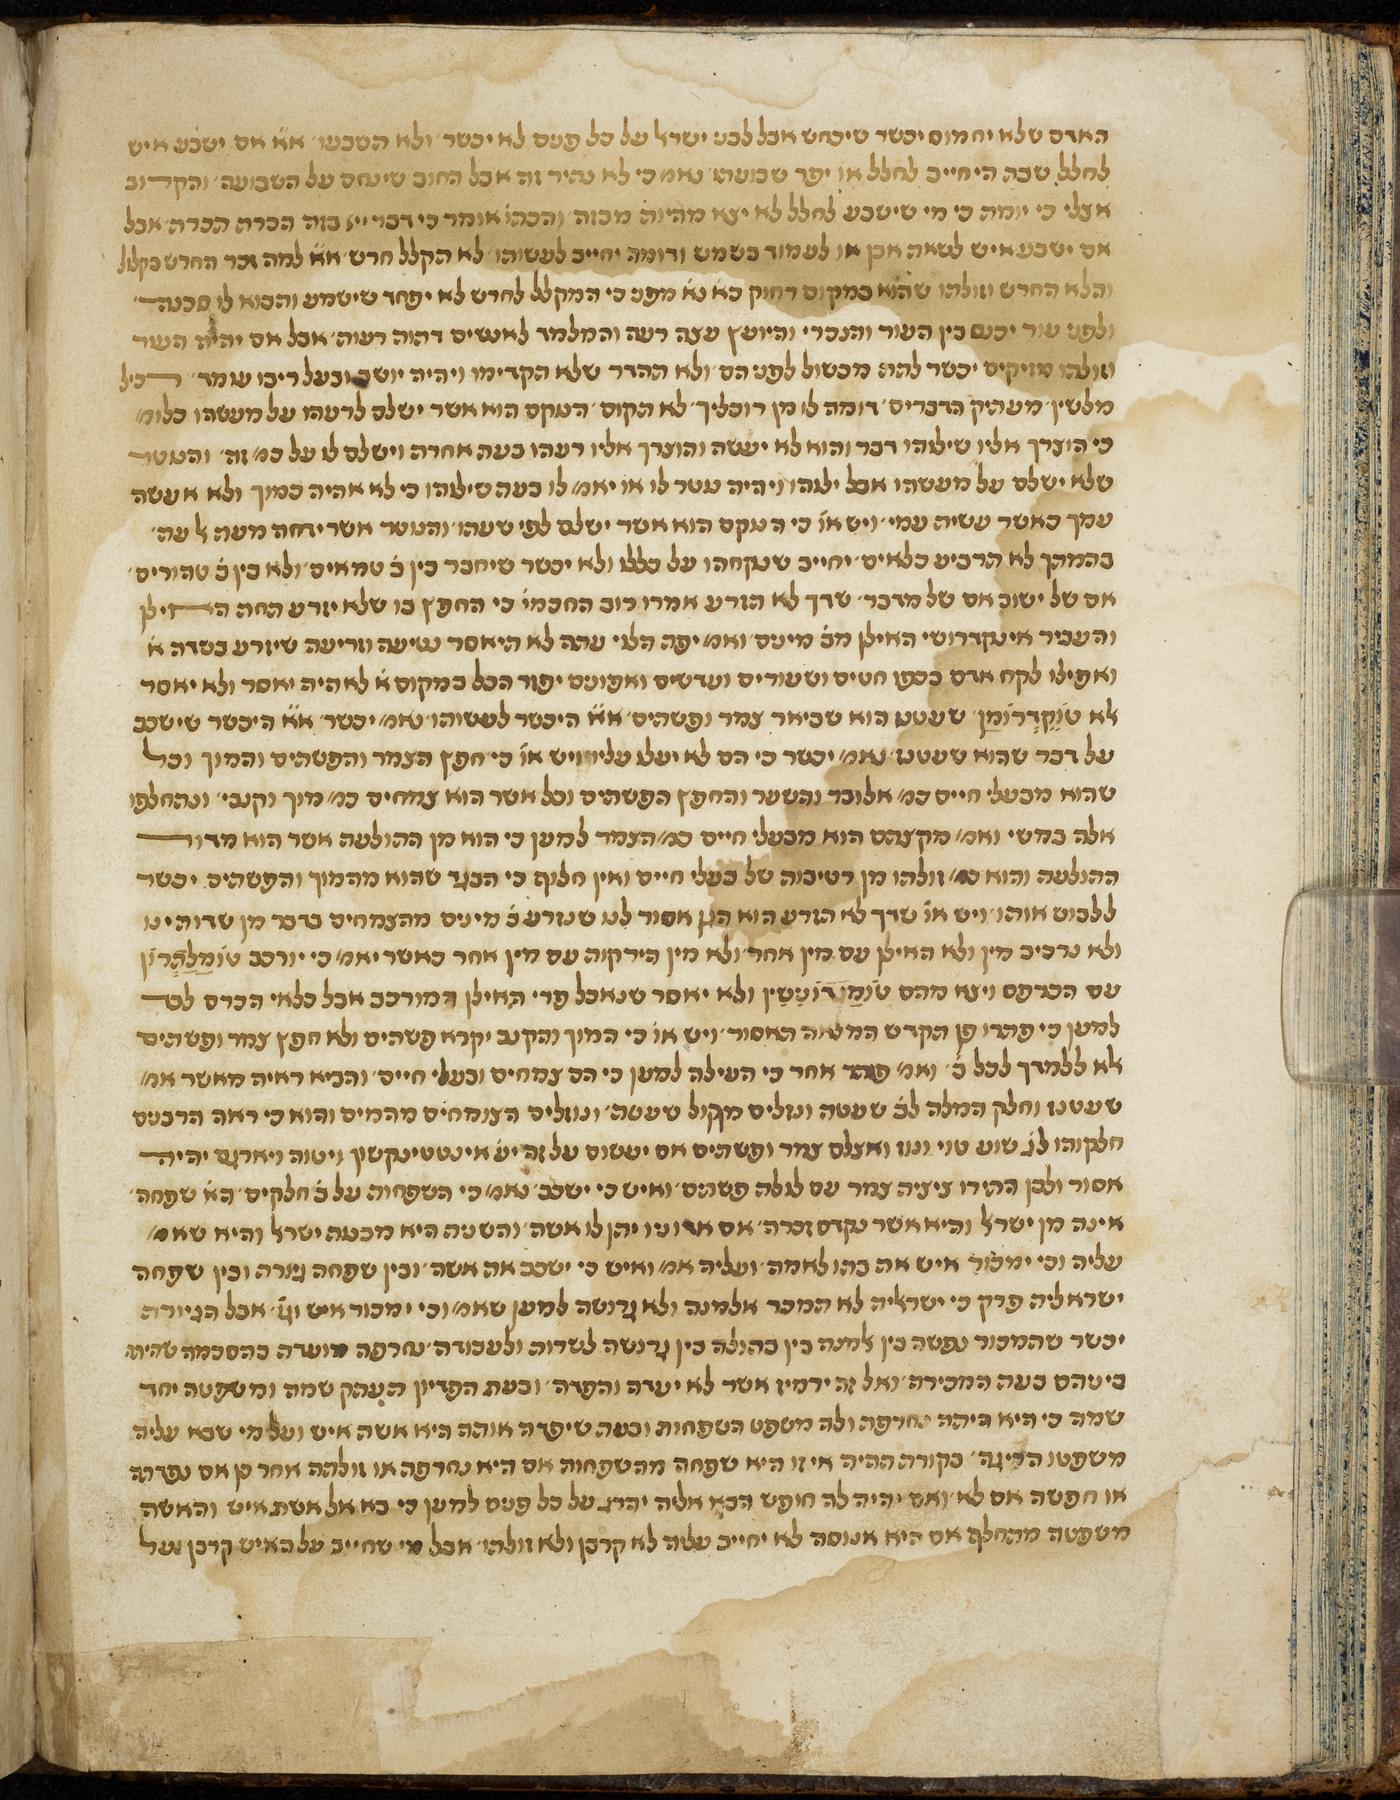 האדם שלא יחמוס יכשר שיכחש אבל לבני ישרל על כל פנים לא יכשר׳ ולא תשבעו׳ א״א אם ישבע איש
לחלל שבת היחייב לחלל או יפר שבועתו׳ נאמ׳ כי לא נהיר זה אבל החוב שינחם על השבועה׳ והקרוב
אצלי כי יומת כי מי שישבע לחלל לא יצא מהיות מבזה׳ והכת׳ אומר כי דבר ייי בזה הכרת תכרת׳ אבל
אם ישבע איש לשאת אבן או לעמוד בשמש ודומה יחייב לעשותו׳ לא תקלל חרש׳ א״א למה זכר החרש בקלול
והלא החרש וזולתו שהוא במקום רחוק בא׳ נא׳ מפני כי המקלל לחרש לא יפחד שישמע והבוא לו סכנה
ולפני עור יכנס בין העור והנכרי והיועץ עצה רעה והמלמד לאנשים דתות רעות׳ אבל אם יהיה העור
וזולתו מזיקים יכשר לתת מכשול לפניהם׳ ולא תהדר שלא תקדימו ויהיה יושב ובעל ריבו עומד׳ רכיל
מלשין׳ מעתיק הדברים׳ דומה לו מן רוכליך׳ לא תקום׳ הנוקם הוא אשר ישלם לרעהו על מעשהו כלומ׳
כי הוצרך אליו שילוהו דבר והוא לא יעשה והוצרך אליו רעהו בעת אחרת וישלם לו על כמ׳ זה׳ והנוטר
שלא ישלם על מעשהו אבל ילוהו ויהיה נוטר לו או יאמ׳ לו בעת שילוהו כי לא אהיה כמוך ולא אעשה
עמך כאשר עשית עמי׳ ויש או׳ כי הנוקם הוא אשר ישלם לפי שעתו׳ והנוטר אשר ידחה מעת ל עת׳
בהמתך לא תרביע כלאים׳ יחייב שנקחהו על כללו ולא יכשר שיחבר בין ב׳ טמאים׳ ולא בין ב׳ טהורים׳
אם של ישוב אם של מדבר׳ שדך לא תזרע אמרו רוב החכמי׳ כי החפץ בו שלא יזרע תחת האילן
והעביר אינקדרושי האילן מב׳ מינים׳ ואמ׳ יפת הלוי עתה לא היאסר נטיעה וזריעה שיזרע בשדה א׳
ואפילו לקח אדם בכפו חטים ושעורים ועדשים ואפונים יפזר הכל במקום א׳ לא היה יאסר ולא יאסר
לא טוקדרומן׳ שעטנז הוא שביאר צמר ופשתים׳ א״א היכשר לעשותו׳ נאמ׳ יכשר׳ א״א היכשר שישכב
על דבר שהוא שעטנז׳ נאמ׳ יכשר כי הם לא יעלו עליו ויש או׳ כי חפץ הצמר והפשתים והמוך וכל
שהוא מבעלי חיים כמ׳ אלובר והשער והחפץ הפשתים וכל אשר הוא צמחים כמ׳ מוך וקנבי׳ ונתחלפו
אלה במשי ואמ׳ מקצתם הוא מבעלי חיים כמ׳ הצמר למען כי הוא מן התולעת אשר הוא מדור
התולעת והוא כמ׳ זולתו מן רטיבות של בעלי חיים ואין חלוף כי הבגד שהוא מהמוך והפשתים יכשר
ללבוש אותו׳ ויש או׳ שדך לא תזרע הוא הגן אסור לנו שנזרע ב׳ מינים מהצמחים בדבר מן שדותינו
ולא נרכיב מין ולא האילן עם מין אחר׳ ולא מין הירקות עם מין אחר כאשר יאמ׳ כי יורכב טומלתרון
עם הכרפס ויצא מהם ולא יאסר שנאכל פרי האילן המורכב אבל כלאי הכרם לבד
למען כי פתרו פן תקדש המלאה תאסור׳ ויש או׳ כי המוך והקנב יקרא פשתים ולא חפץ צמר ופשתים
לא ללמדך לכל ב׳ ואמ׳ פותר אחר כי העילה למען כי הם צמחים ובעלי חיים׳ והביא ראיה מאשר אמ׳
שעטנז וחלק המלה לב׳ שעטה ונוזלים מקול שעטת׳ ונוזלים הצומחים מהמים והוא כי ראה הרבנים
חלקוהו לג׳ שוע טווי ונוז ואצלם צמר ופשתים אם יעשום על זה יע׳ אינטטינקטין ויטוה ויארגם יהיה
אסור ולכן התירו ציצית צמר עם לגלה פשתים׳ ואיש כי ישכב׳ נאמ׳ כי השפחות על ב׳ חלקים׳ הא׳ שפחה
אינה מן ישרל והיא אשר נקדם זכרה׳ אם אדוניו יתן לו אשה׳ והשנית היא מבנות ישרל והיא שאמ׳
עליה וכי ימכור איש את בתו לאמה׳ ועליה אמ׳ ואיש כי ישכב את אשה׳ ובין שפחה גיורת ובין שפחה
ישראלית פרק כי ישראלית לא תמכר אלמנה ולא גרושה למען שאמ׳ וכי ימכור איש וג׳׳ אבל הגיורת
יכשר שתמכור נפשה בין אלמנה בין בתולה בין גרושה לשרות ולעבודה׳ נחרפת מועדה בהסכמה שהיתה
ביניהם בעת המכירה׳ ואל זה ירמיז אשר לא יעדה והפדה׳ ובעת הפדיון העתק שמה ומשפטה יחד
שמה כי היא היתה נחרפת ולה משפט השפחות ובעת שיפדה אותה היא אשת איש ועל מי שבא עליה
משפטו הריגה׳ בקורת תהיה אי זו היא שפחה מהשפחות אם היא נחרפת או זולתה אחר כן אם נפדתה
או חפשה אם לא׳ ואם יהיה לה חופש הבא אליה יהרג על כל פנים למען כי בא אל אשת איש והאשה
משפטה מתחלף אם היא אנוסה לא יחייב עליה לא קרבן ולא זולתו׳ אבל מי שחייב על האיש קרבן ועל